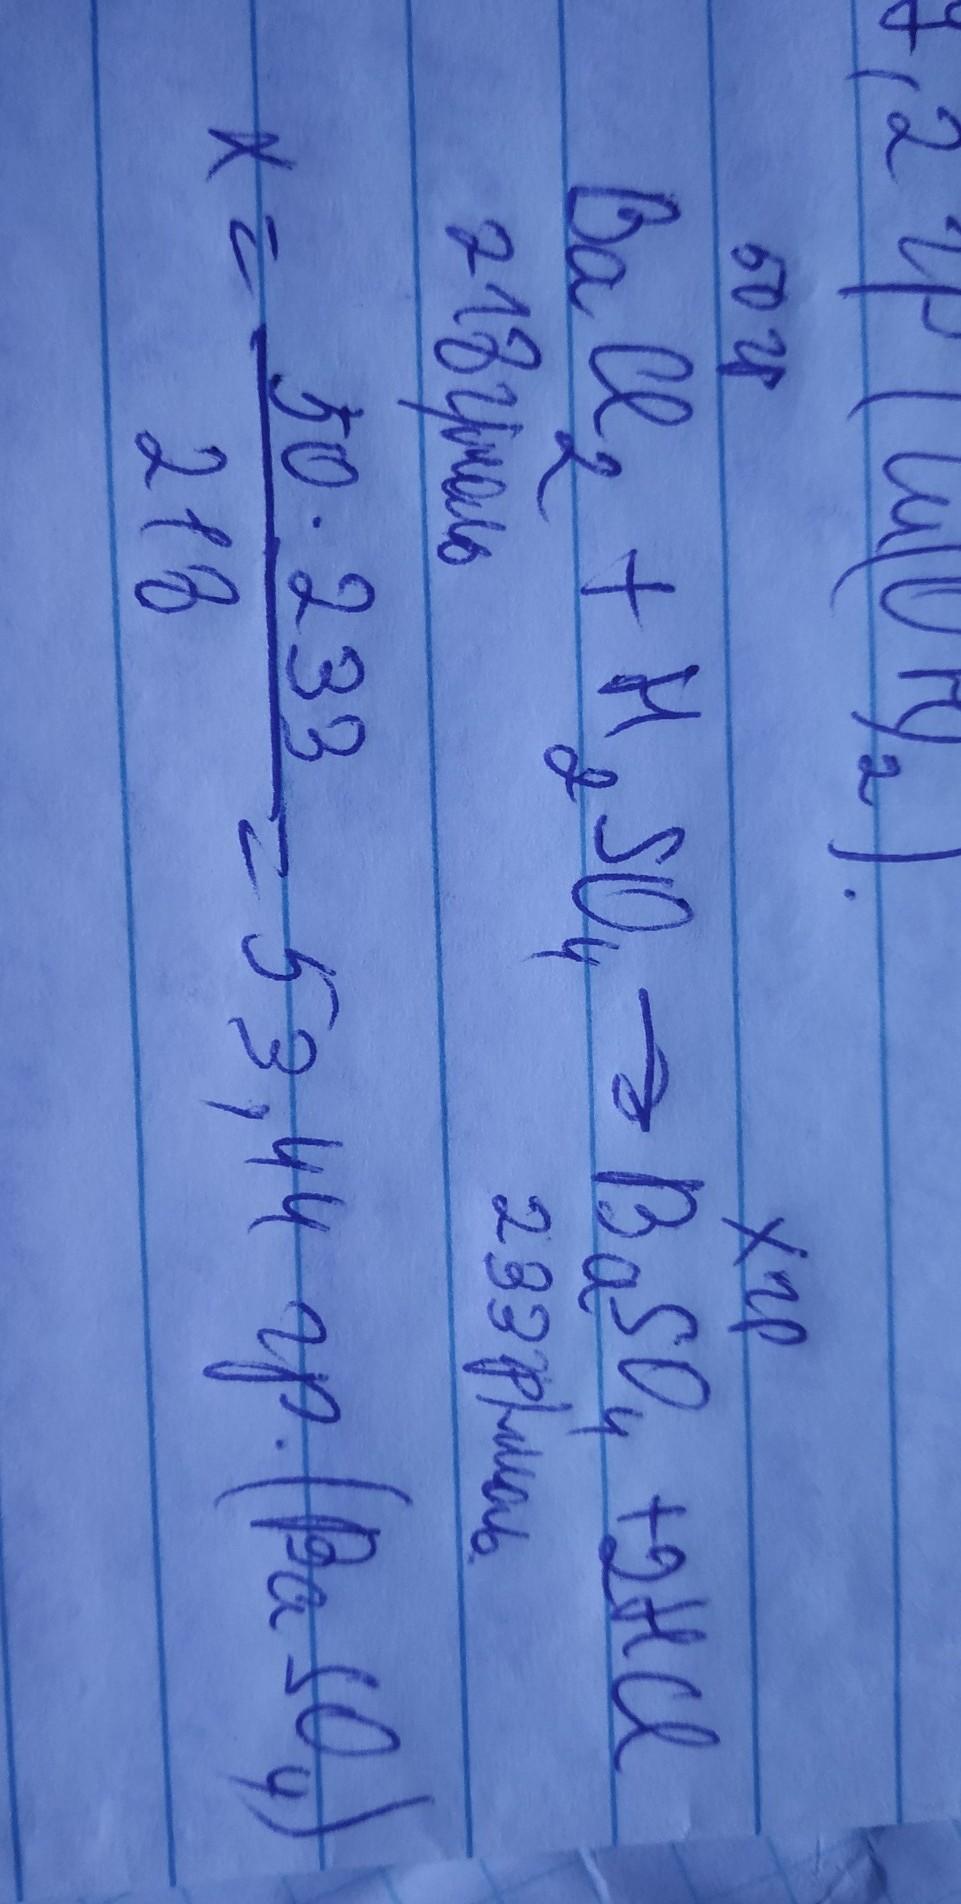 ,2 гр (Cu(OH)2).
50 гр X гр
BaCl2 + H2SO4 → BaSO4 + 2HCl
218 гр/моль 233 гр/моль
X = 50 · 233 / 218 = 53,44 гр. (BaSO4)